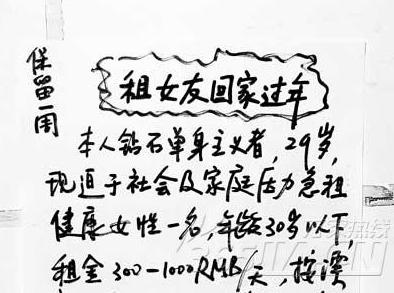 保留一周
租女友回家过年
本人钻石单身主义者，29岁，
现迫于社会及家庭压力急租
健康女性一名，年龄30岁以下，
租金300-1000RMB/天，按
热线